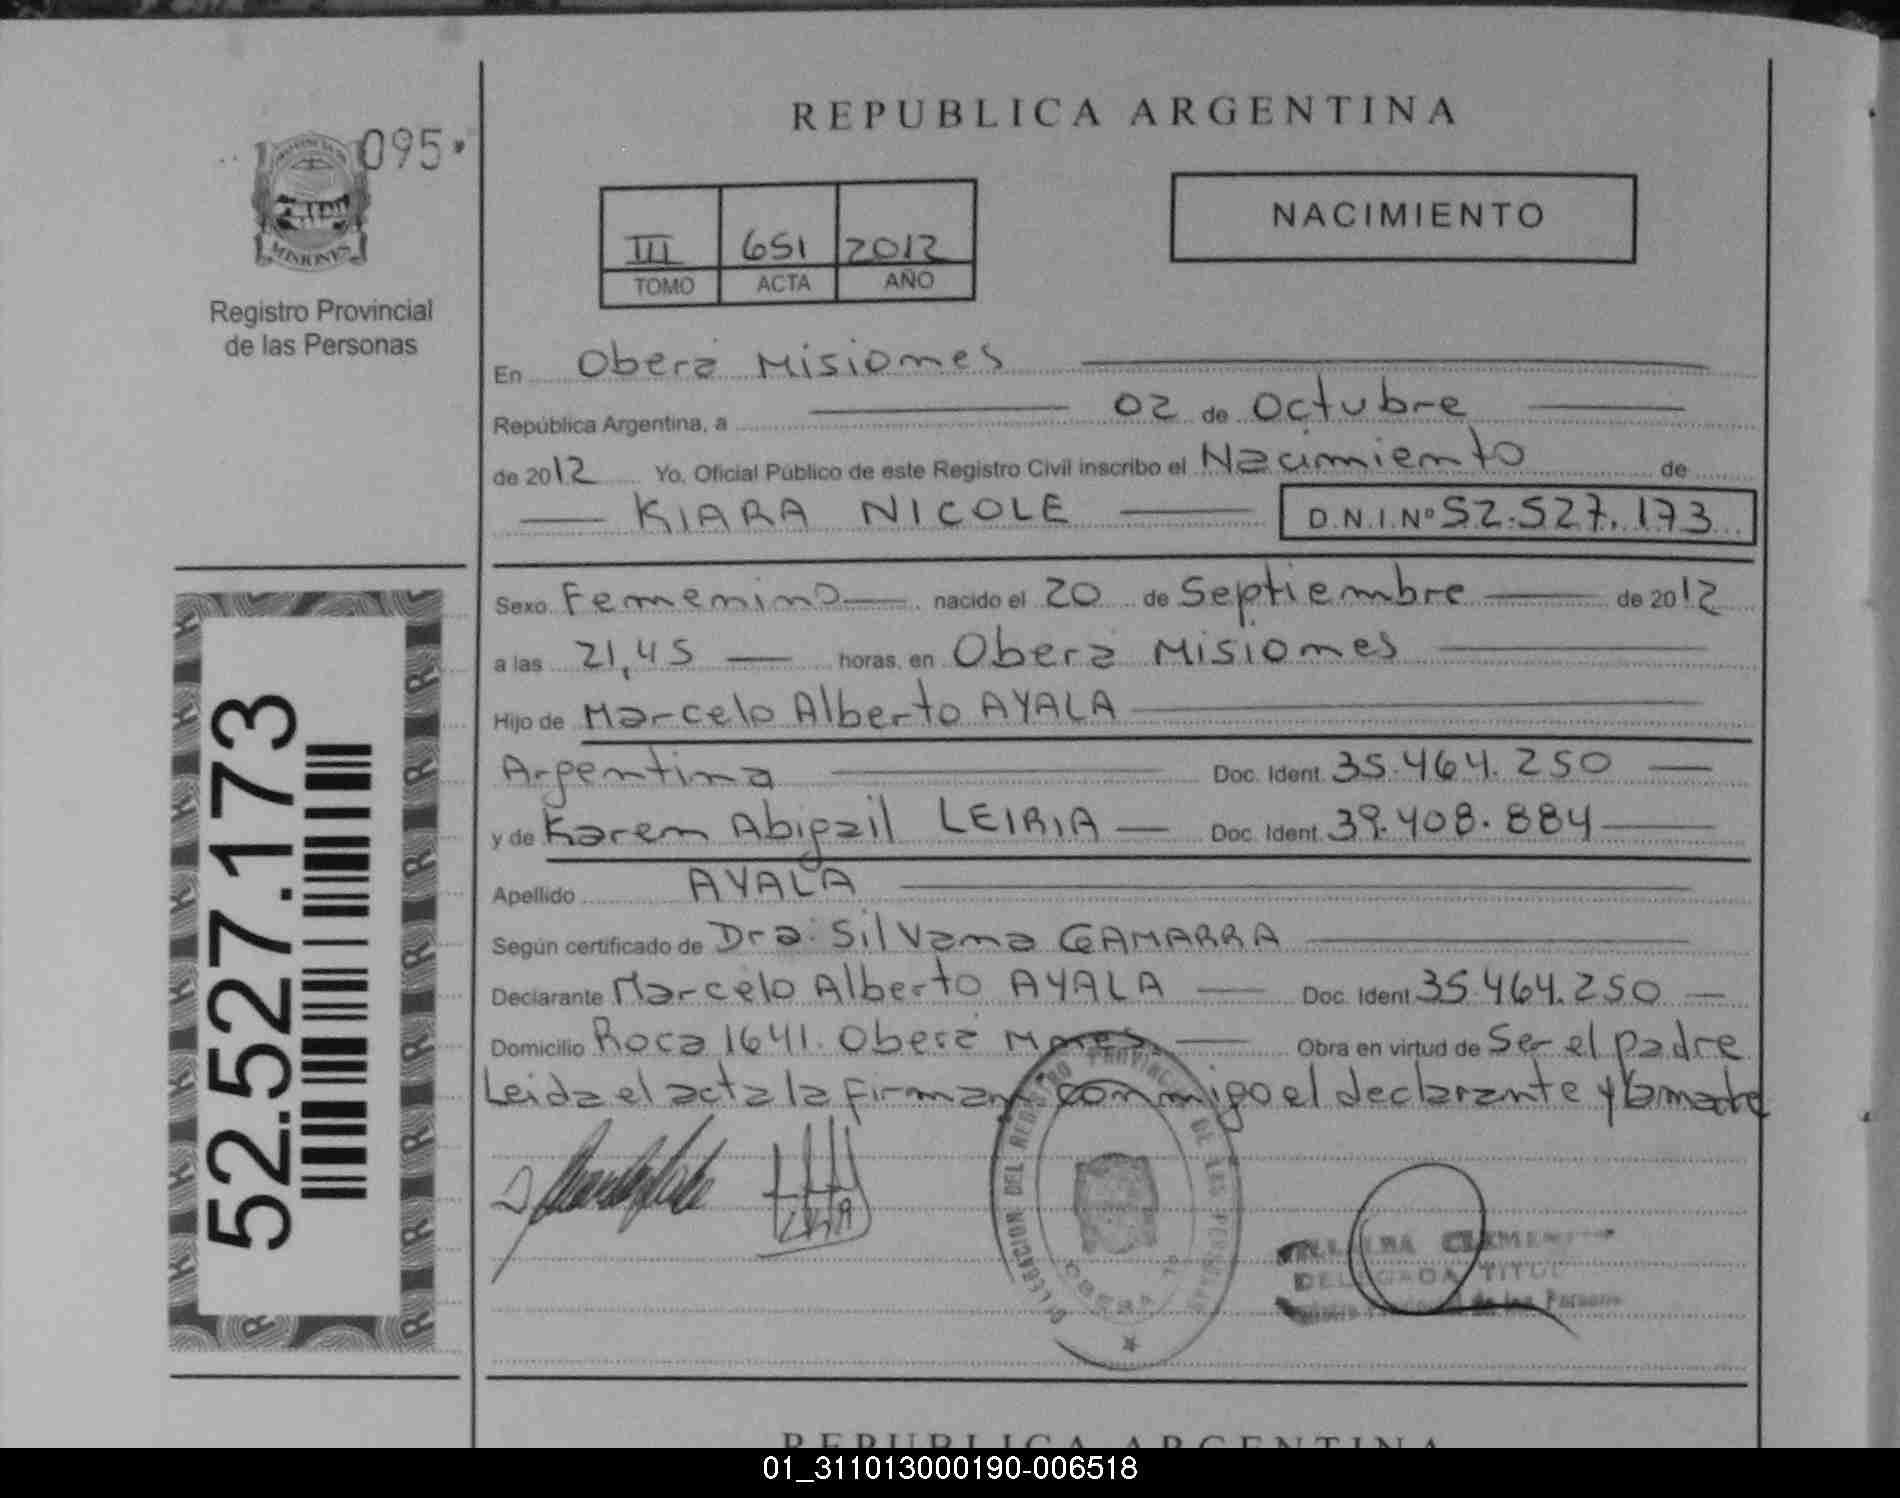 REPUBLICA ARGENTINA
095
MISIONES
Registro Provincial
de las Personas
NACIMIENTO
III 651 2012
TOMO ACTA AÑO
En Oberá Misiones
República Argentina, a 02 de Octubre
de 2012 Yo, Oficial Público de este Registro Civil inscribo el Nacimiento de
KIARA NICOLE D.N.I.Nº 52.527.173
Sexo Femenino nacido el 20 de Septiembre de 2012
a las 21,45 horas, en Oberá Misiones
Hijo de Marcelo Alberto AYALA
Argentina Doc. Ident. 35.464.250
y de Karen Abigail LEIRIA Doc. Ident. 39.408.884
Apellido AYALA
Según certificado de Dra: Silvana GAMARRA
Declarante Marcelo Alberto AYALA Doc. Ident. 35.464.250
Domicilio Roca 1641. Oberá Mnes Obra en virtud de Ser el padre
Leida el acta la firman conmigo el declarante y la madre
52.527.173
DELEGACION DEL REGISTRO PROVINCIAL DE LAS PERSONAS
OBERA
DELEGADA TITUL
REPUBLICA ARGENTINA
01_311013000190-006518